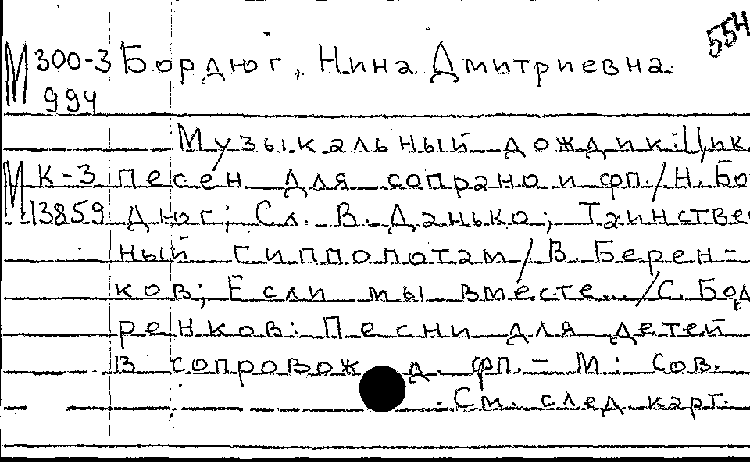 554
М 300-3 Бордюг, Нина Дмитриевна.
994
Музыкальный дождик: Цик
М К-3 песен для сопрано и фп. / Н. Бо
13859 дюг; Сл. В. Данько; Таинстве
ный гиппопотам / В. Берен-
ков; Если мы вместе... / С. Бод
ренков: Песни для детей
в сопровож д. фп. - М: Сов.
См. след. карт.